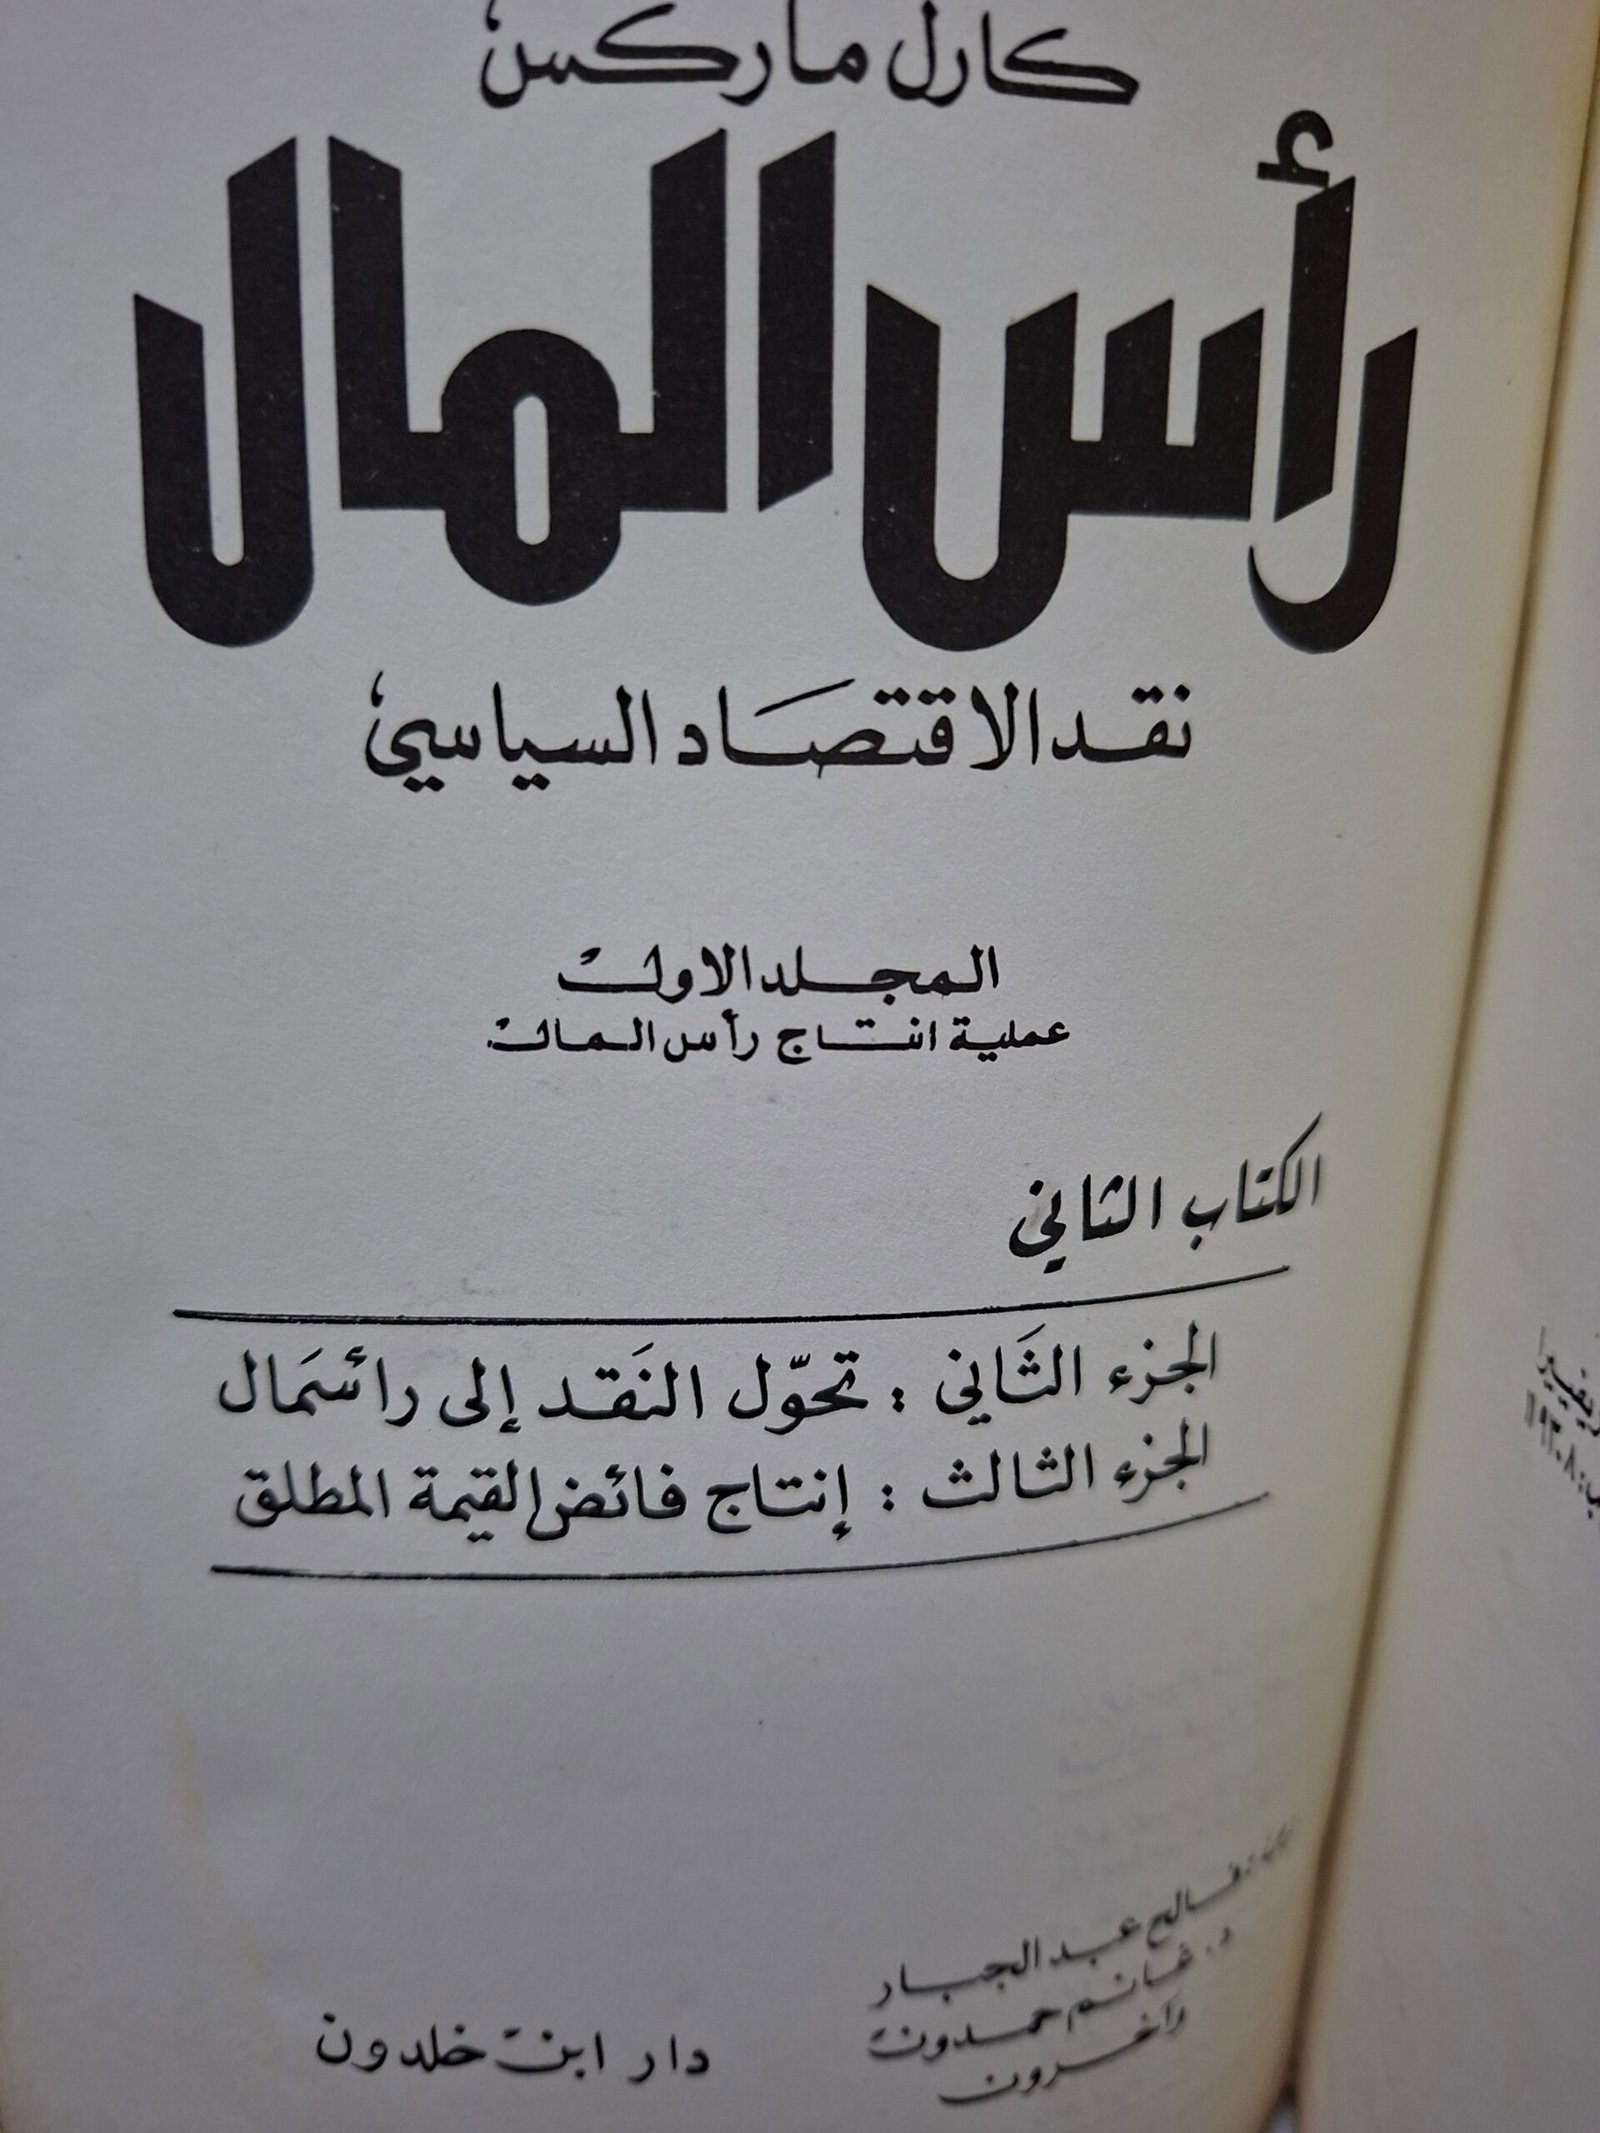 كارل ماركس
رأس المال
نقد الاقتصاد السياسي
المجلد الاول
عملية انتاج رأس المال
الكتاب الثاني
الجزء الثَاني : تحوّل النَقد إلى رأسمَال
الجزء الثالث : إنتاج فائض القيمة المطلق
فالح عبد الجبار
د. غانم حمدون
وآخرون
دار ابن خلدون